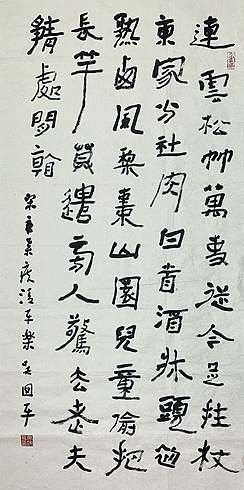 連雲松竹萬事從今足拄杖
東家分社肉白酒床頭初
熟西風梨棗山園兒童偷把
長竿莫遣旁人驚去老夫
靜處閒看
宋辛棄疾清平樂 吳回平